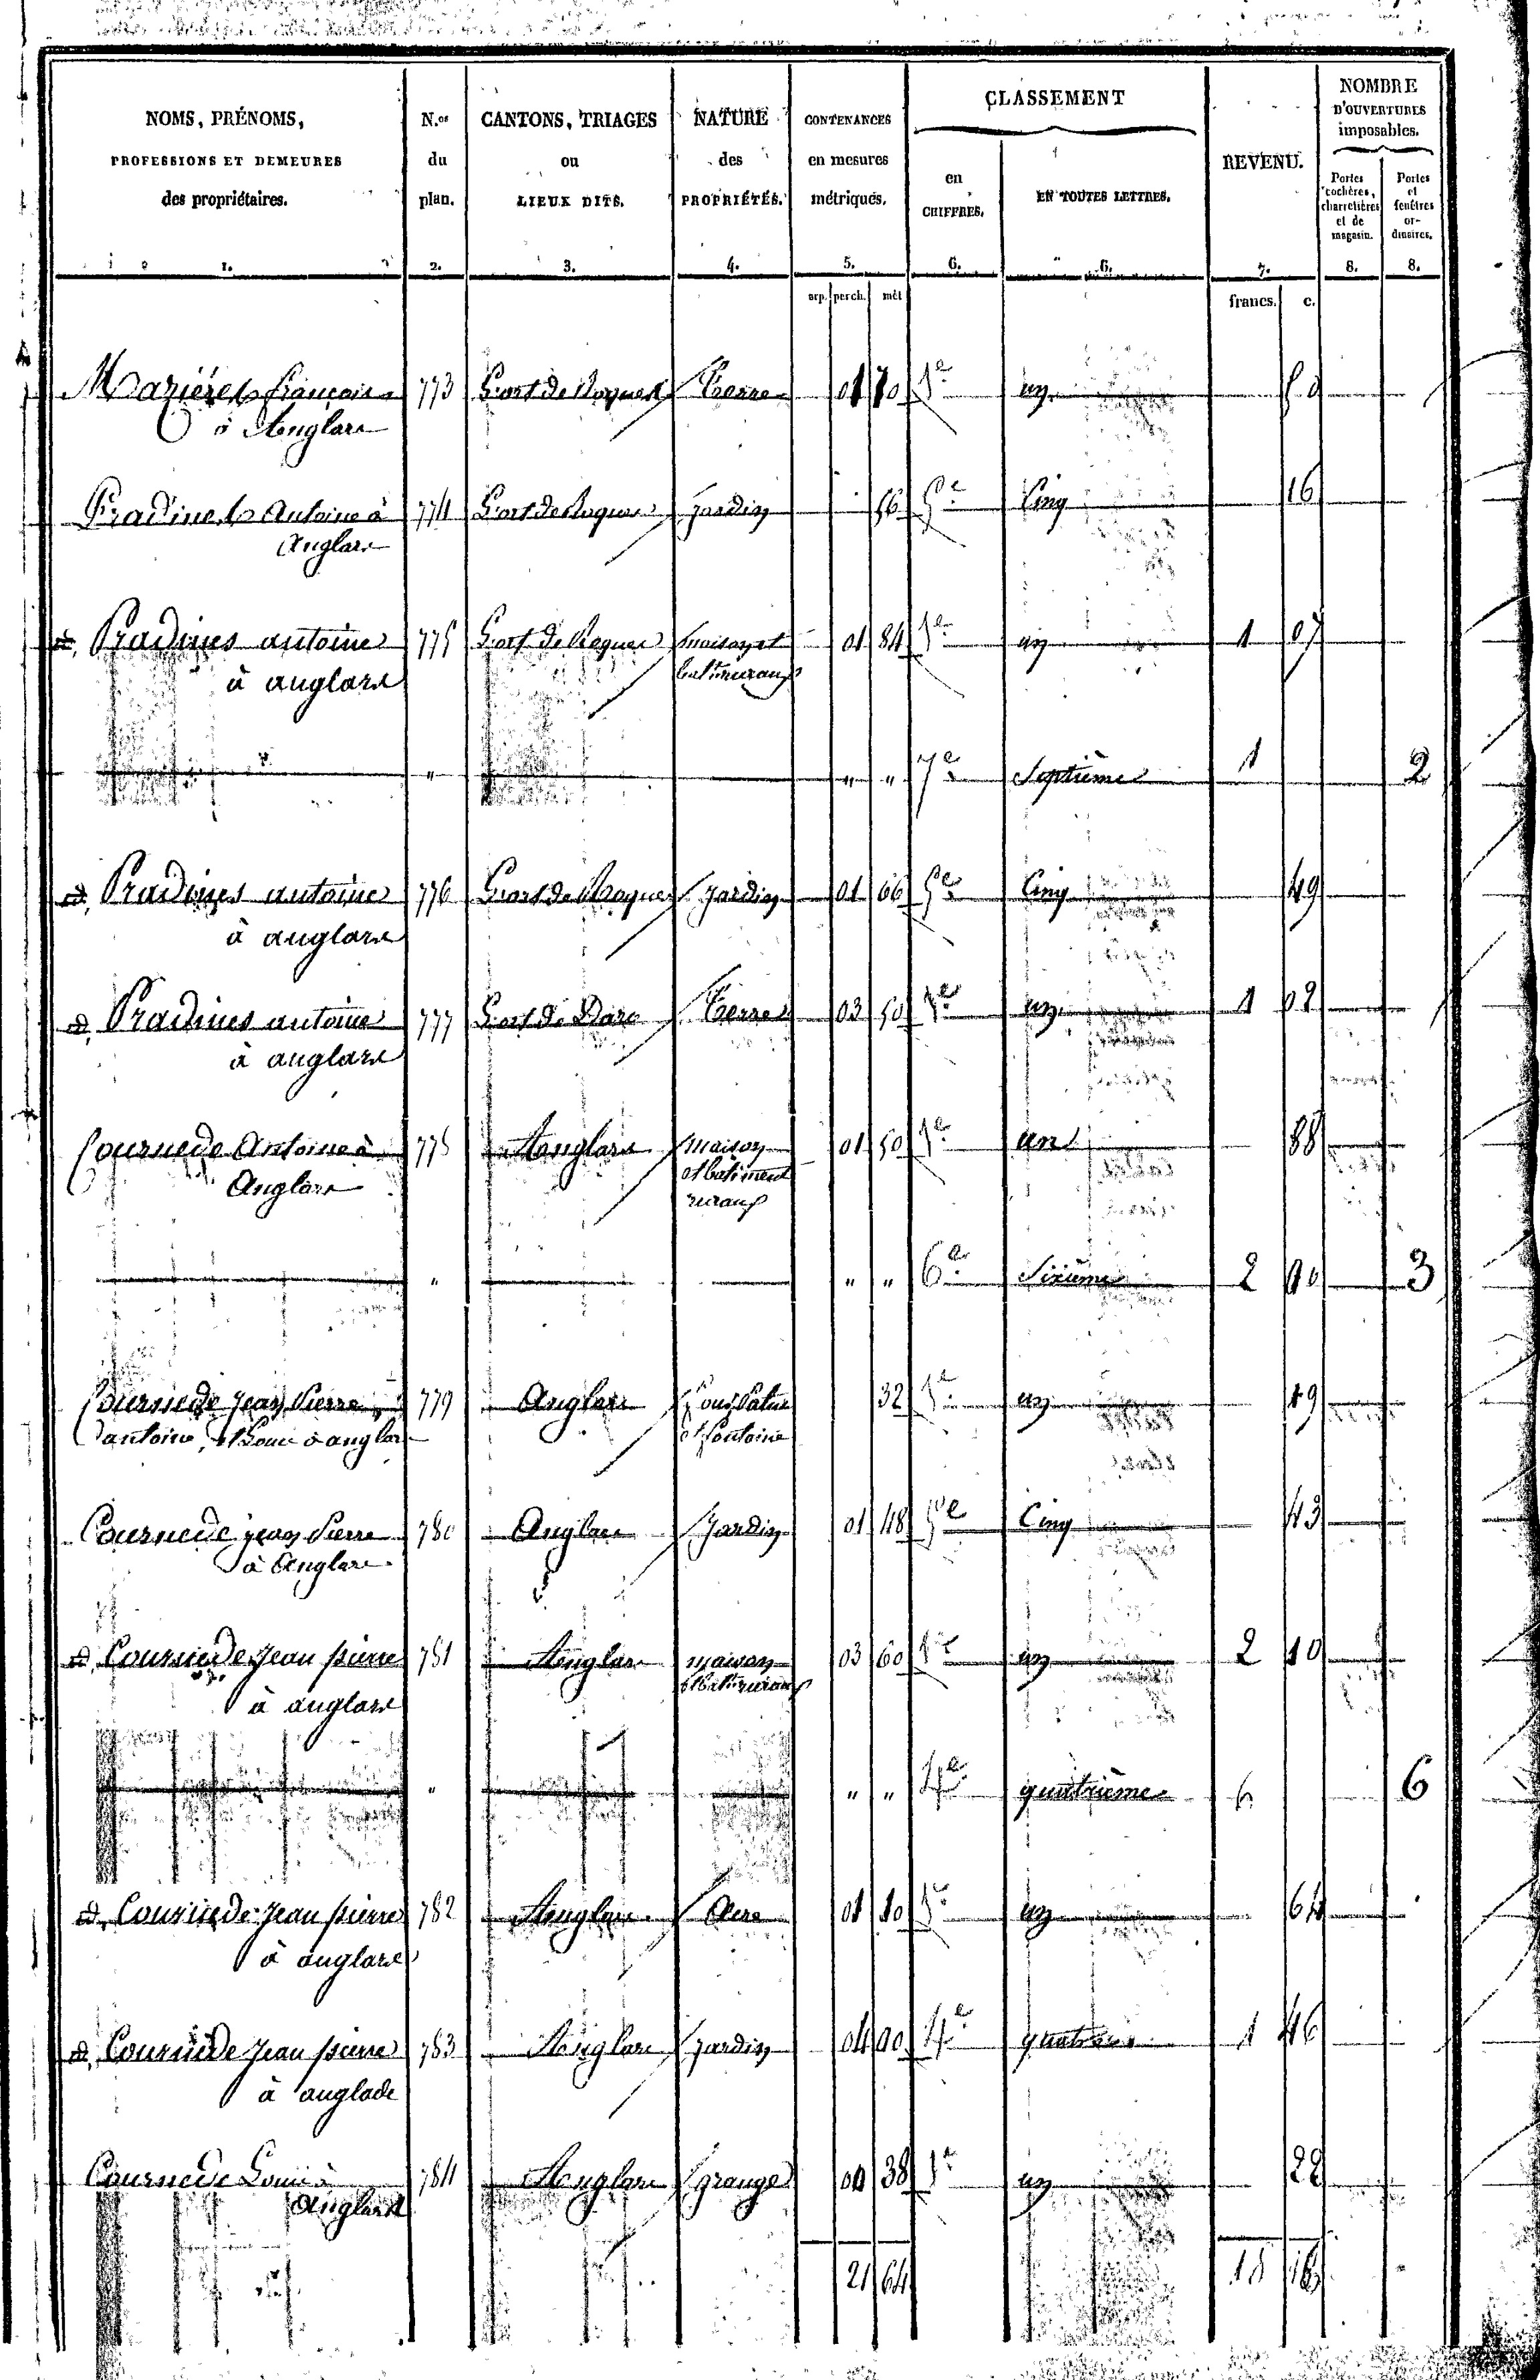 NOMS, PRÉNOMS, PROFESSIONS ET DEMEURES des propriétaires. N.os du plan. CANTONS, TRIAGES ou LIEUX DITS. NATURE des PROPRIÉTÉS. CONTENANCES en mesures métriques. CLASSEMENT en CHIFFRES. EN TOUTES LETTRES. REVENU. NOMBRE D'OUVERTURES imposables. Portes cochères, charretières et de magasin. Portes et fenêtres ordinaires.
1. 2. 3. 4. 5. 6. 6. 7. 8. 8.
arp. perch. mèt francs. c.
françois 773 Terre 01 70 1e un
à Anglars
Antoine à 774 jardin 56 5e Cinq 16
Anglars
Pradines antoine 775 maison et 01 84 1e un 1 07
à anglars bat. ruraux
" " " 7e Septième 1 2
Pradines antoine 776 jardin 01 66 5e Cinq 49
à anglars
Pradines antoine 777 Terre 03 50 1e un 1 02
à anglars
Cournede Antoine à 778 Anglars maison 01 50 1e un 88
Anglars et batiment
ruraux
" " " 6e Sixième 2 3
Cournede jean Pierre 779 Anglars 32 1e un 19
antoine, à anglars et fontaine
Cournede jean Pierre 780 Anglars Jardin 01 48 5e Cinq 43
à Anglars
Cournede Jean pierre 781 Anglars maison 03 60 1e un 2 10
à anglars et bat. ruraux
" " " 4e quatrième 6 6
Cournede Jean pierre 782 Anglars 01 10 1e un 64
à anglars
Cournede Jean pierre 783 Anglars jardin 04 00 4e 1 46
à anglade
Cournede Louis à 784 Anglars grange 00 38 1e un 22
Anglars
21 64 18